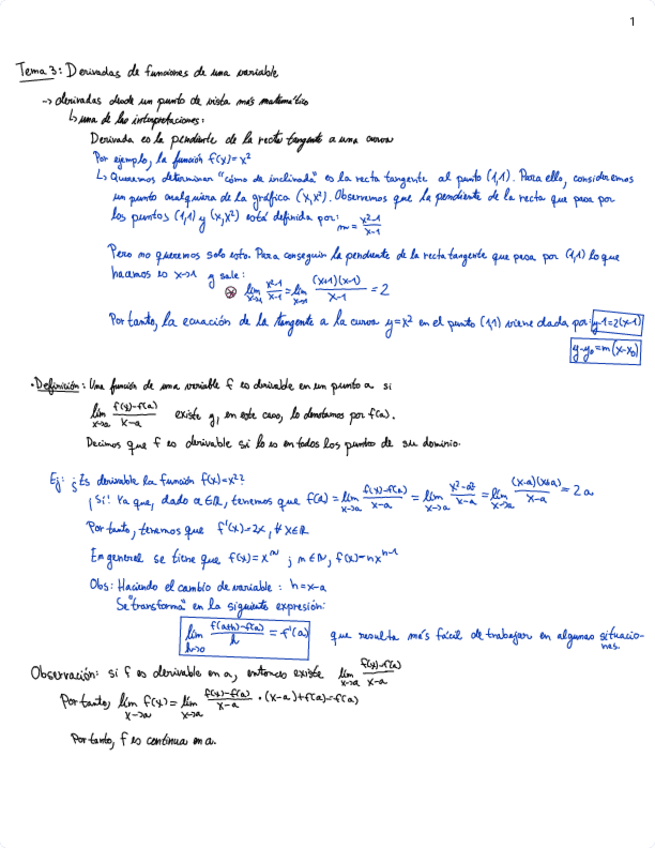 1
Tema 3: Derivadas de funciones de una variable
-> derivadas desde un punto de vista más matemático
↳ una de las interpretaciones:
Derivada es la pendiente de la recta tangente a una curva
Por ejemplo, la función f(x)=x²
↳ Queremos determinar "cómo de inclinada" es la recta tangente al punto (1,1). Para ello, consideremos
un punto cualquiera de la gráfica (x,x²). Observemos que la pendiente de la recta que pasa por
los puntos (1,1) y (x,x²) está definida por: m = (x²-1)/(x-1)
Pero no queremos solo esto. Para conseguir la pendiente de la recta tangente que pasa por (1,1) lo que
hacemos es x→1 y sale:
⊛ lim x→1 (x²-1)/(x-1) = lim x→1 ((x+1)(x-1))/(x-1) = 2
Por tanto, la ecuación de la tangente a la curva y=x² en el punto (1,1) viene dada por: y-1=2(x-1)
y-y₀=m(x-x₀)
· Definición: Una función de una variable f es derivable en un punto a si
lim x→a (f(x)-f(a))/(x-a) existe y, en este caso, lo denotamos por f(a).
Decimos que f es derivable si lo es en todos los puntos de su dominio.
Ej: ¿Es derivable la función f(x)=x²?
¡Sí! Ya que, dado a∈ℝ, tenemos que f(a) = lim x→a (f(x)-f(a))/(x-a) = lim x→a (x²-a²)/(x-a) = lim x→a ((x-a)(x+a))/(x-a) = 2a
Por tanto, tenemos que f'(x)=2x, ∀ x∈ℝ
En general se tiene que f(x)=xⁿ ; n∈ℕ, f(x)=nxⁿ⁻¹
Obs: Haciendo el cambio de variable: h=x-a
Se "transforma" en la siguiente expresión:
lim h→0 (f(a+h)-f(a))/h = f'(a) que resulta más fácil de trabajar en algunas situacio-
nes.
Observación: si f es derivable en a, entonces existe lim x→a (f(x)-f(a))/(x-a)
Por tanto, lim x→a f(x) = lim x→a (f(x)-f(a))/(x-a) · (x-a)+f(a)=f(a)
Por tanto, f es continua en a.